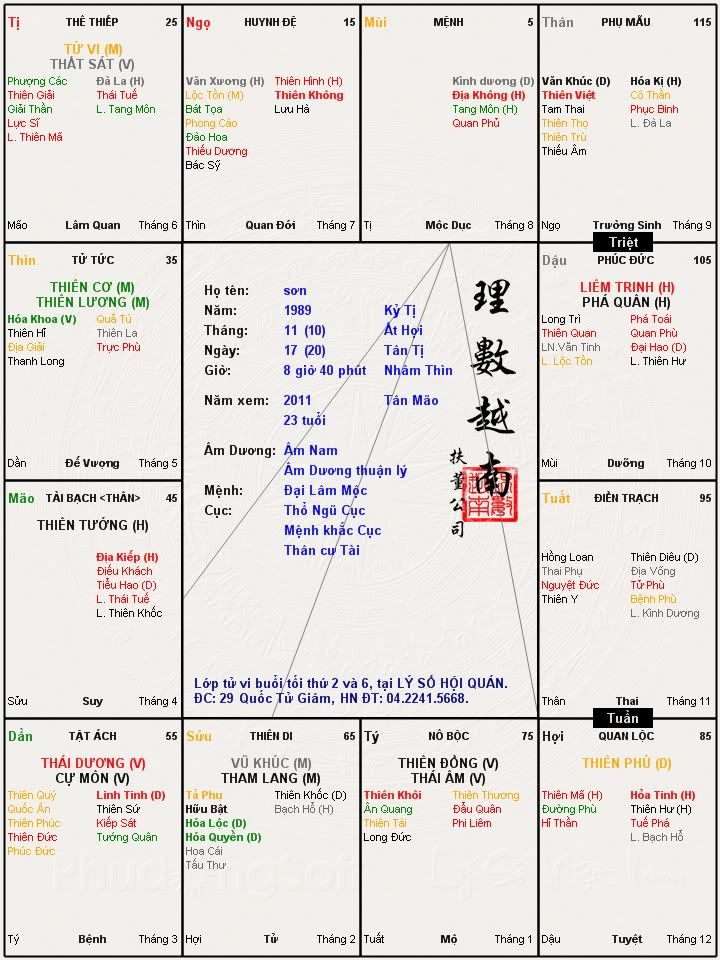 Tị THÊ THIẾP 25
TỬ VI (M)
THẤT SÁT (V)
Phượng Các Đà La (H)
Thiên Giải Thái Tuế
Giải Thần L. Tang Môn
Lực Sĩ
L. Thiên Mã
Mão Lâm Quan Tháng 6
Ngọ HUYNH ĐỆ 15
Văn Xương (H) Thiên Hình (H)
Lộc Tồn (M) Thiên Không
Bát Tọa Lưu Hà
Phong Cáo
Đào Hoa
Thiếu Dương
Bác Sỹ
Thìn Quan Đới Tháng 7
Mùi MỆNH 5
Kình dương (D)
Địa Không (H)
Tang Môn (H)
Quan Phủ
Tị Mộc Dục Tháng 8
Thân PHỤ MẪU 115
Văn Khúc (D) Hóa Kị (H)
Thiên Việt Cô Thần
Tam Thai Phục Binh
Thiên Thọ L. Đà La
Thiên Trù
Thiếu Âm
Ngọ Trưởng Sinh Tháng 9
Triệt
Thìn TỬ TỨC 35
THIÊN CƠ (M)
THIÊN LƯƠNG (M)
Hóa Khoa (V) Quả Tú
Thiên Hĩ Thiên La
Địa Giải Trực Phù
Thanh Long
Dần Đế Vượng Tháng 5
Họ tên: sơn
Năm: 1989 Kỷ Tị
Tháng: 11 (10) Ất Hợi
Ngày: 17 (20) Tân Tị
Giờ: 8 giờ 40 phút Nhâm Thìn
Năm xem: 2011 Tân Mão
23 tuổi
Âm Dương: Âm Nam
Âm Dương thuận lý
Mệnh: Đại Lâm Mộc
Cục: Thổ Ngũ Cục
Mệnh khắc Cục
Thân cư Tài
理數越南
扶董公司
Lớp tử vi buổi tối thứ 2 và 6, tại LÝ SỐ HỘI QUÁN.
ĐC: 29 Quốc Tử Giám, HN ĐT: 04.2241.5668.
Dậu PHÚC ĐỨC 105
LIÊM TRINH (H)
PHÁ QUÂN (H)
Long Trì Phá Toái
Thiên Quan Quan Phù
LN.Văn Tinh Đại Hao (D)
L. Lộc Tồn L. Thiên Hư
Mùi Dưỡng Tháng 10
Mão TÀI BẠCH <THÂN> 45
THIÊN TƯỚNG (H)
Địa Kiếp (H)
Điếu Khách
Tiểu Hao (D)
L. Thái Tuế
L. Thiên Khốc
Sửu Suy Tháng 4
Tuất ĐIỀN TRẠCH 95
Hồng Loan Thiên Diêu (D)
Thai Phụ Địa Võng
Nguyệt Đức Tử Phù
Thiên Y Bệnh Phù
L. Kình Dương
Thân Thai Tháng 11
Tuần
Dần TẬT ÁCH 55
THÁI DƯƠNG (V)
CỰ MÔN (V)
Thiên Quý Linh Tinh (D)
Quốc Ấn Thiên Sứ
Thiên Phúc Kiếp Sát
Thiên Đức Tướng Quân
Phúc Đức
Tý Bệnh Tháng 3
Sửu THIÊN DI 65
VŨ KHÚC (M)
THAM LANG (M)
Tả Phu Thiên Khốc (D)
Hữu Bật Bạch Hổ (H)
Hóa Lộc (D)
Hóa Quyền (D)
Hoa Cái
Tấu Thư
Hợi Tử Tháng 2
Tý NÔ BỘC 75
THIÊN ĐỒNG (V)
THÁI ÂM (V)
Thiên Khôi Thiên Thương
Ân Quang Đẩu Quân
Thiên Tài Phi Liêm
Long Đức
Tuất Mộ Tháng 1
Hợi QUAN LỘC 85
THIÊN PHỦ (D)
Thiên Mã (H) Hỏa Tinh (H)
Đường Phù Thiên Hư (H)
Hỉ Thần Tuế Phá
L. Bạch Hổ
Dậu Tuyệt Tháng 12